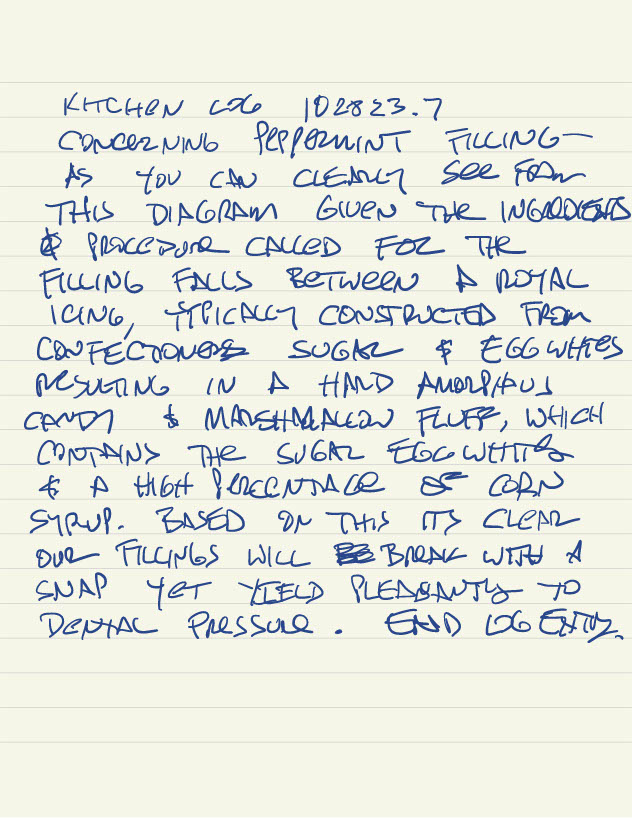 KITCHEN LOG 102823.7
CONCERNING PEPPERMINT FILLING—
AS YOU CAN CLEARLY SEE FROM
THIS DIAGRAM GIVEN THE INGREDIENTS
& PROCEDURE CALLED FOR THE
FILLING FALLS BETWEEN A ROYAL
ICING, TYPICALLY CONSTRUCTED FROM
CONFECTIONERS SUGAR & EGG WHITES
RESULTING IN A HARD AMORPHUS
CANDY & MARSHMALLOW FLUFF, WHICH
CONTAINS THE SUGAR EGG WHITES
& A HIGH PERCENTAGE OF CORN
SYRUP. BASED ON THIS ITS CLEAR
OUR FILLINGS WILL BREAK WITH A
SNAP YET YIELD PLEASANTLY TO
DENTAL PRESSURE. END LOG ENTRY.